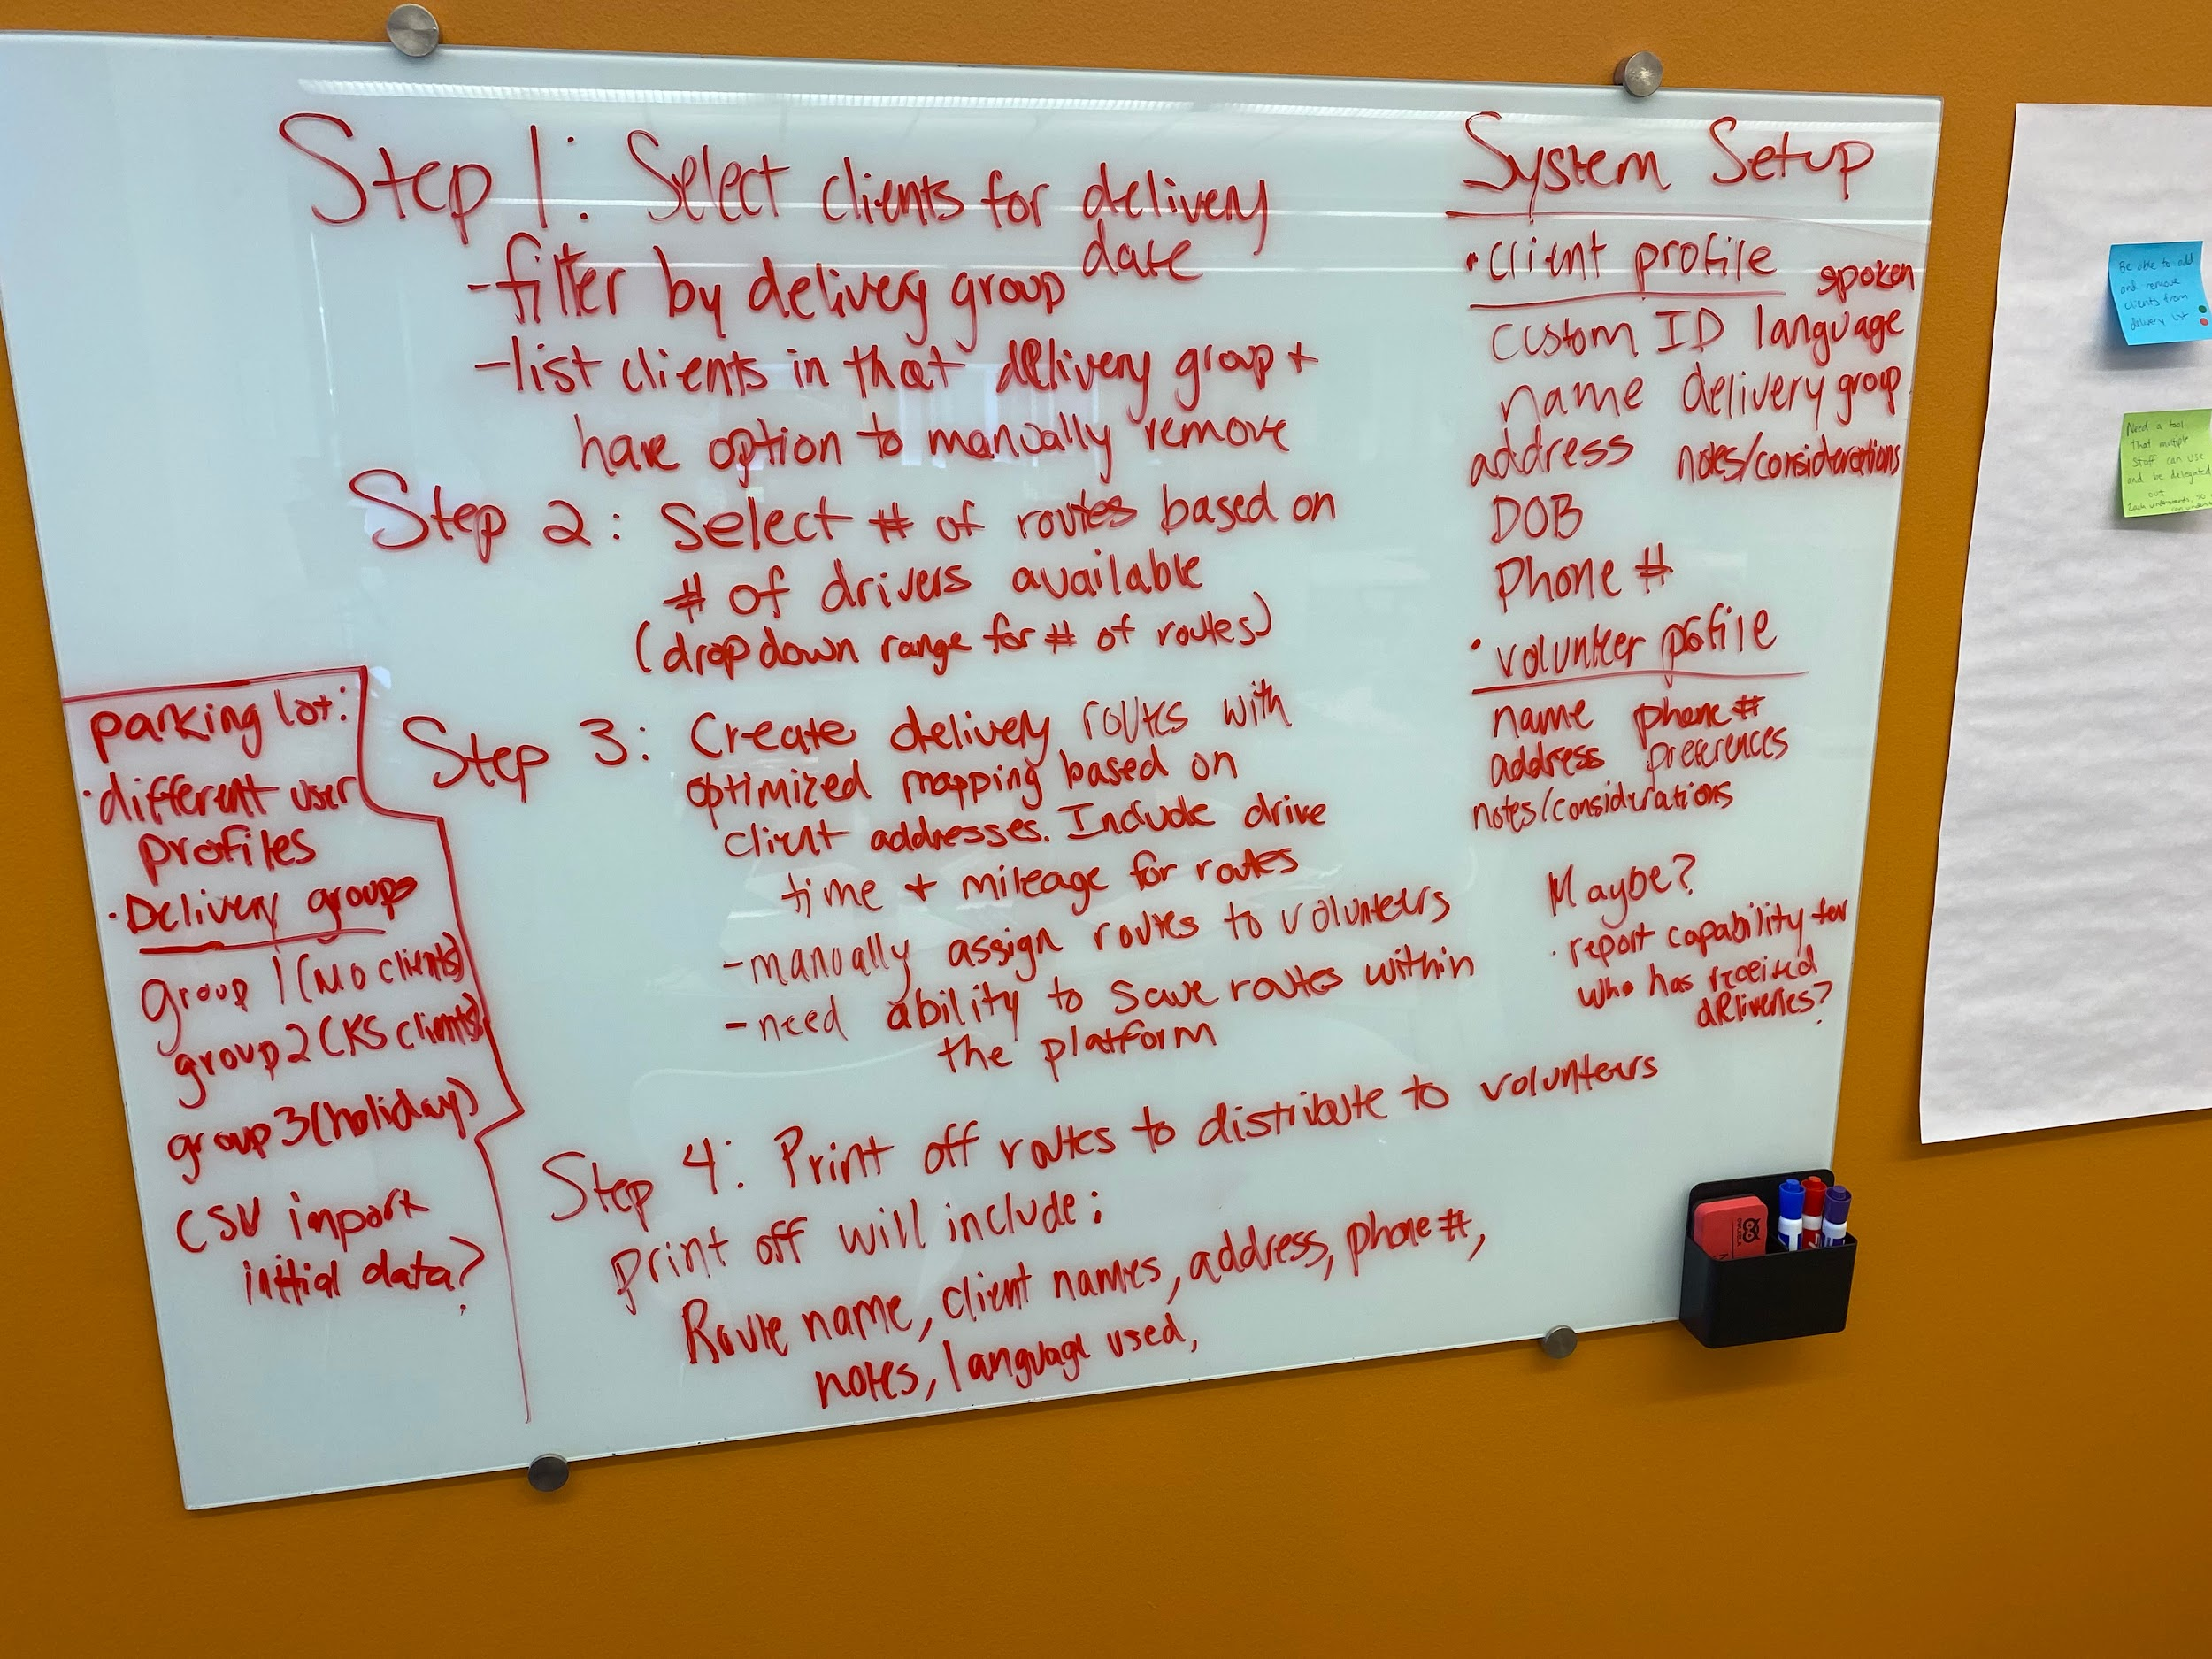 Step 1: Select clients for delivery
date
-filter by delivery group
-list clients in that delivery group +
have option to manually remove
Step 2: Select # of routes based on
# of drivers available
(drop down range for # of routes)
Step 3: Create delivery routes with
optimized mapping based on
client addresses. Include drive
time + mileage for routes
-manually assign routes to volunteers
-need ability to save routes within
the platform
Step 4: Print off routes to distribute to volunteers
Print off will include:
Route name, client names, address, phone #,
notes, language used,
parking lot:
·different user
profiles
·Delivery groups
group 1 (MO clients)
group 2 (KS clients)
group 3 (holiday)
CSV import
initial data?
System Setup
·client profile
spoken
custom ID language
name delivery group
address notes/considerations
DOB
Phone #
·volunteer profile
name phone #
address preferences
notes/considerations
Maybe?
·report capability for
who has received
deliveries?
Be able to add
and remove
clients from
delivery list
Need a tool
that multiple
staff can use
and be delegated
out